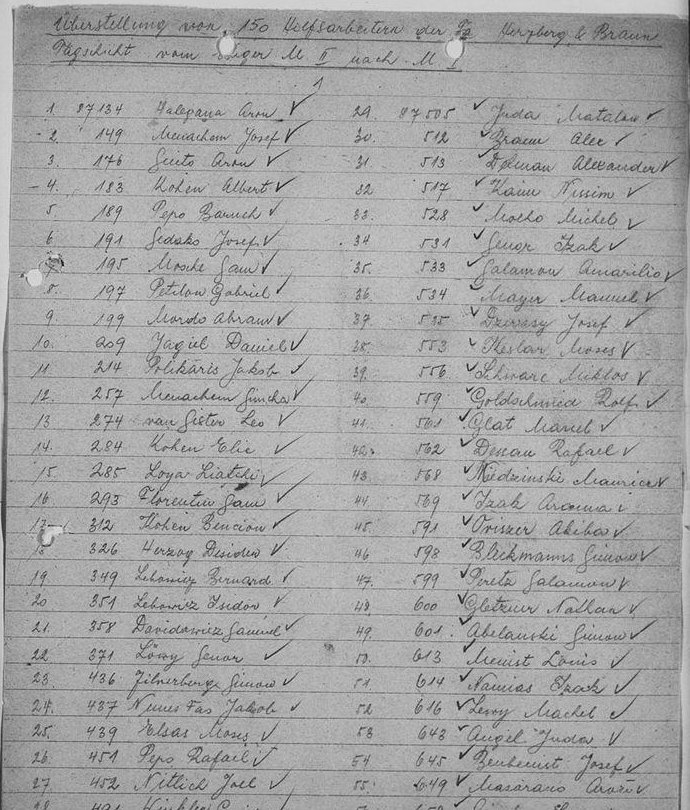 Überstellung von 150 Hilfsarbeitern der Fa Herzberg & Braun
Tagschicht vom Lager M II nach M I
1
1. 87134 Halegana Aron ✓
2. 149 Menachem Josef ✓
3. 176 Aron ✓
4. 183 Kohen Albert ✓
5. 189 Pepo Baruch ✓
6. 191 Josef ✓
7. 195 Mosche Sam ✓
8. 197 Petilon Gabriel ✓
9. 199 Mordo Abram ✓
10. 209 Jagiel Daniel ✓
11. 214 Polikaris Jakob ✓
12. 257 Menachem Simcha ✓
13 274 van Leo ✓
14. 284 Kohen Elie ✓
15. 285 Loya ✓
16 293 Florentin Sam ✓
17. 312 Kohen Bencion ✓
18 326 Herzog Desider ✓
19. 349 Lebowicz Bernard ✓
20 351 Lebowicz Isidor ✓
21. 358 Davidowicz Samuel ✓
22. 371 Löwy ✓
23. 436 Zilverberg Simon ✓
24. 437 Nunes Fas Jakob ✓
25. 439 Elsas Moses ✓
26. 451 Pepo Rafael ✓
27. 452 Nittich Joel ✓
28 491
29. 87505 ✓ Juda Matalon ✓
30. 512 ✓ Braun Alex ✓
31. 513 ✓ Alexander ✓
32 517 ✓ Nissim ✓
33. 528 ✓ Molho Michel ✓
34 531 ✓ Izak ✓
35. 533 ✓ Salamon Amarilio ✓
36. 534 ✓ Mayer Manuel ✓
37. 535 ✓ Josef ✓
38. 553 ✓ Keslar Moses ✓
39. 556 ✓ Schwarc Miklos ✓
40. 559 ✓ Goldschmid Rolf ✓
41. 561 ✓ Glat Marcel ✓
42. 562 ✓ Dessau Rafael ✓
43. 568 ✓ Niedzinski Maurice ✓
44. 569 ✓ Izak ✓
45. 591 ✓ Akiba ✓
46 598 ✓ Blickmanns Simon ✓
47. 599 ✓ Peretz Salamon ✓
48 600 ✓ Nathan ✓
49. 601. ✓ Abelanski Simon ✓
50. 613 ✓ Louis ✓
51 614 ✓ Namias Izak ✓
52 616 ✓ Lewy Machel ✓
53 643 ✓ Angel Juda ✓
54 645 ✓ Benbenist Josef ✓
55. 649 ✓ Masarano